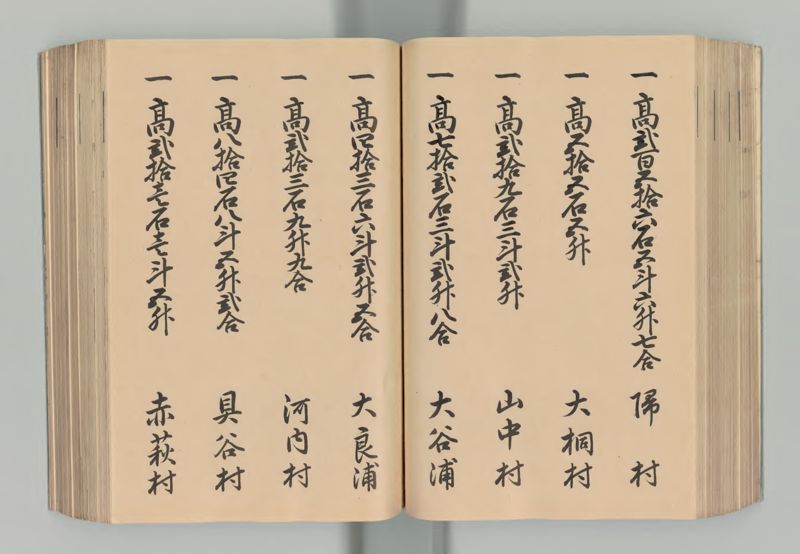 一 高弐百五拾六石五斗六升七合 帰 村
一 高五拾五石五升 大桐村
一 高弐拾九石三斗弐升 山中村
一 高七拾弐石三斗弐升八合 大谷浦
一 高四拾三石六斗弐升五合 大良浦
一 高弐拾三石九升九合 河内村
一 高八拾四石八斗五升弐合 具谷村
一 高弐拾壱石壱斗五升 赤萩村